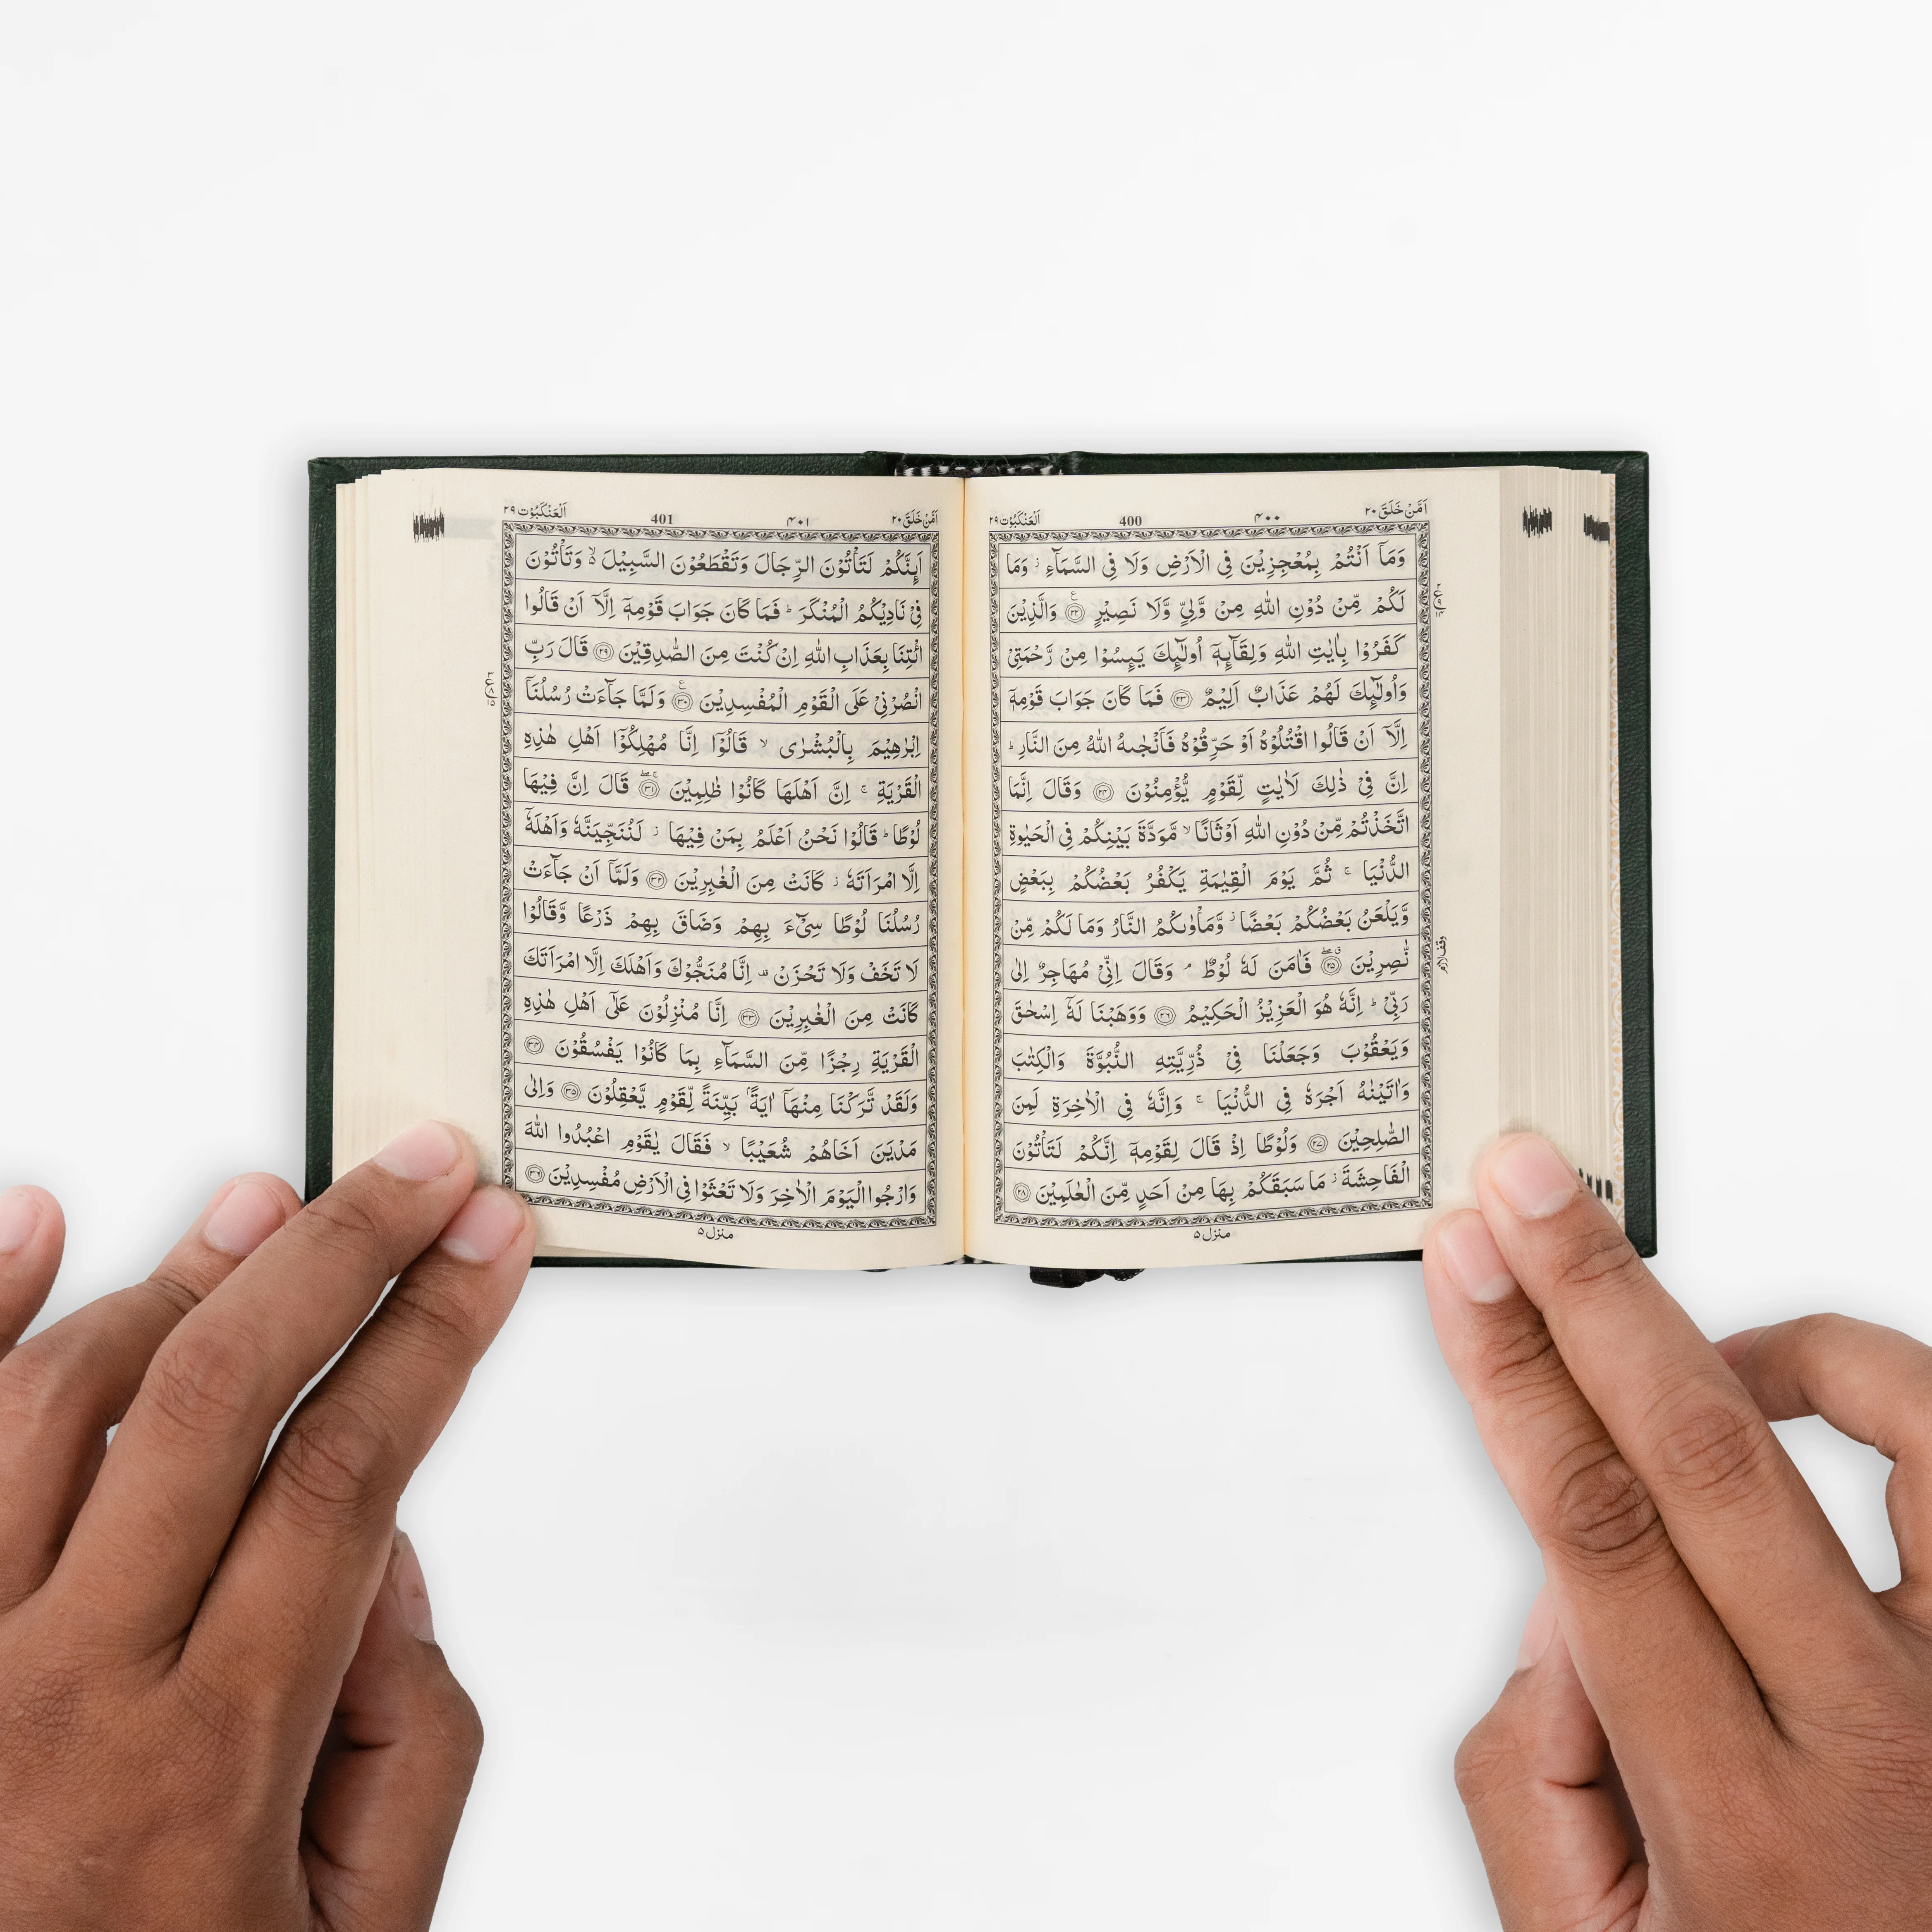 اَمَّنْ خَلَقَ ٢٠ ۴۰۰ 400 اَلْعَنْكَبُوْت ٢٩
وَمَاۤ اَنْتُمْ بِمُعْجِزِيْنَ فِي الْاَرْضِ وَلَا فِي السَّمَآءِ ؗ وَمَا
لَكُمْ مِّنْ دُوْنِ اللّٰهِ مِنْ وَّلِيٍّ وَّلَا نَصِيْرٍ ۝٢٢ وَالَّذِيْنَ
كَفَرُوْا بِاٰيٰتِ اللّٰهِ وَلِقَآىِٕهٖۤ اُولٰٓىِٕكَ يَىِٕسُوْا مِنْ رَّحْمَتِيْ
وَاُولٰٓىِٕكَ لَهُمْ عَذَابٌ اَلِيْمٌ ۝٢٣ فَمَا كَانَ جَوَابَ قَوْمِهٖۤ
اِلَّاۤ اَنْ قَالُوا اقْتُلُوْهُ اَوْ حَرِّقُوْهُ فَاَنْجٰىهُ اللّٰهُ مِنَ النَّارِ ؕ
اِنَّ فِيْ ذٰلِكَ لَاٰيٰتٍ لِّقَوْمٍ يُّؤْمِنُوْنَ ۝٢٤ وَقَالَ اِنَّمَا
اتَّخَذْتُمْ مِّنْ دُوْنِ اللّٰهِ اَوْثَانًا ۙ مَّوَدَّةَ بَيْنِكُمْ فِي الْحَيٰوةِ
الدُّنْيَا ۚ ثُمَّ يَوْمَ الْقِيٰمَةِ يَكْفُرُ بَعْضُكُمْ بِبَعْضٍ
وَّيَلْعَنُ بَعْضُكُمْ بَعْضًا ؗ وَّمَاْوٰىكُمُ النَّارُ وَمَا لَكُمْ مِّنْ
نّٰصِرِيْنَ ۝٢٥ فَاٰمَنَ لَهٗ لُوْطٌ ۘ وَقَالَ اِنِّيْ مُهَاجِرٌ اِلٰى
رَبِّيْ ؕ اِنَّهٗ هُوَ الْعَزِيْزُ الْحَكِيْمُ ۝٢٦ وَوَهَبْنَا لَهٗۤ اِسْحٰقَ
وَيَعْقُوْبَ وَجَعَلْنَا فِيْ ذُرِّيَّتِهِ النُّبُوَّةَ وَالْكِتٰبَ
وَاٰتَيْنٰهُ اَجْرَهٗ فِي الدُّنْيَا ۚ وَاِنَّهٗ فِي الْاٰخِرَةِ لَمِنَ
الصّٰلِحِيْنَ ۝٢٧ وَلُوْطًا اِذْ قَالَ لِقَوْمِهٖۤ اِنَّكُمْ لَتَاْتُوْنَ
الْفَاحِشَةَ ؗ مَا سَبَقَكُمْ بِهَا مِنْ اَحَدٍ مِّنَ الْعٰلَمِيْنَ ۝٢٨
منزل ٥
وقف لازم
اَمَّنْ خَلَقَ ٢٠ ۴۰۱ 401 اَلْعَنْكَبُوْت ٢٩
اَىِٕنَّكُمْ لَتَاْتُوْنَ الرِّجَالَ وَتَقْطَعُوْنَ السَّبِيْلَ ۙ۬ وَتَاْتُوْنَ
فِيْ نَادِيْكُمُ الْمُنْكَرَ ؕ فَمَا كَانَ جَوَابَ قَوْمِهٖۤ اِلَّاۤ اَنْ قَالُوا
ائْتِنَا بِعَذَابِ اللّٰهِ اِنْ كُنْتَ مِنَ الصّٰدِقِيْنَ ۝٢٩ قَالَ رَبِّ
انْصُرْنِيْ عَلَى الْقَوْمِ الْمُفْسِدِيْنَ ۝٣٠ وَلَمَّا جَآءَتْ رُسُلُنَاۤ
اِبْرٰهِيْمَ بِالْبُشْرٰى ۙ قَالُوْۤا اِنَّا مُهْلِكُوْۤا اَهْلِ هٰذِهِ
الْقَرْيَةِ ۚ اِنَّ اَهْلَهَا كَانُوْا ظٰلِمِيْنَ ۝٣١ قَالَ اِنَّ فِيْهَا
لُوْطًا ؕ قَالُوْا نَحْنُ اَعْلَمُ بِمَنْ فِيْهَا ؗ لَنُنَجِّيَنَّهٗ وَاَهْلَهٗۤ
اِلَّا امْرَاَتَهٗ ؗ كَانَتْ مِنَ الْغٰبِرِيْنَ ۝٣٢ وَلَمَّاۤ اَنْ جَآءَتْ
رُسُلُنَا لُوْطًا سِيْٓءَ بِهِمْ وَضَاقَ بِهِمْ ذَرْعًا وَّقَالُوْا
لَا تَخَفْ وَلَا تَحْزَنْ ۫ اِنَّا مُنَجُّوْكَ وَاَهْلَكَ اِلَّا امْرَاَتَكَ
كَانَتْ مِنَ الْغٰبِرِيْنَ ۝٣٣ اِنَّا مُنْزِلُوْنَ عَلٰۤى اَهْلِ هٰذِهِ
الْقَرْيَةِ رِجْزًا مِّنَ السَّمَآءِ بِمَا كَانُوْا يَفْسُقُوْنَ ۝٣٤
وَلَقَدْ تَّرَكْنَا مِنْهَاۤ اٰيَةًۢ بَيِّنَةً لِّقَوْمٍ يَّعْقِلُوْنَ ۝٣٥ وَاِلٰى
مَدْيَنَ اَخَاهُمْ شُعَيْبًا ۙ فَقَالَ يٰقَوْمِ اعْبُدُوا اللّٰهَ
وَارْجُوا الْيَوْمَ الْاٰخِرَ وَلَا تَعْثَوْا فِي الْاَرْضِ مُفْسِدِيْنَ ۝٣٦
منزل ٥